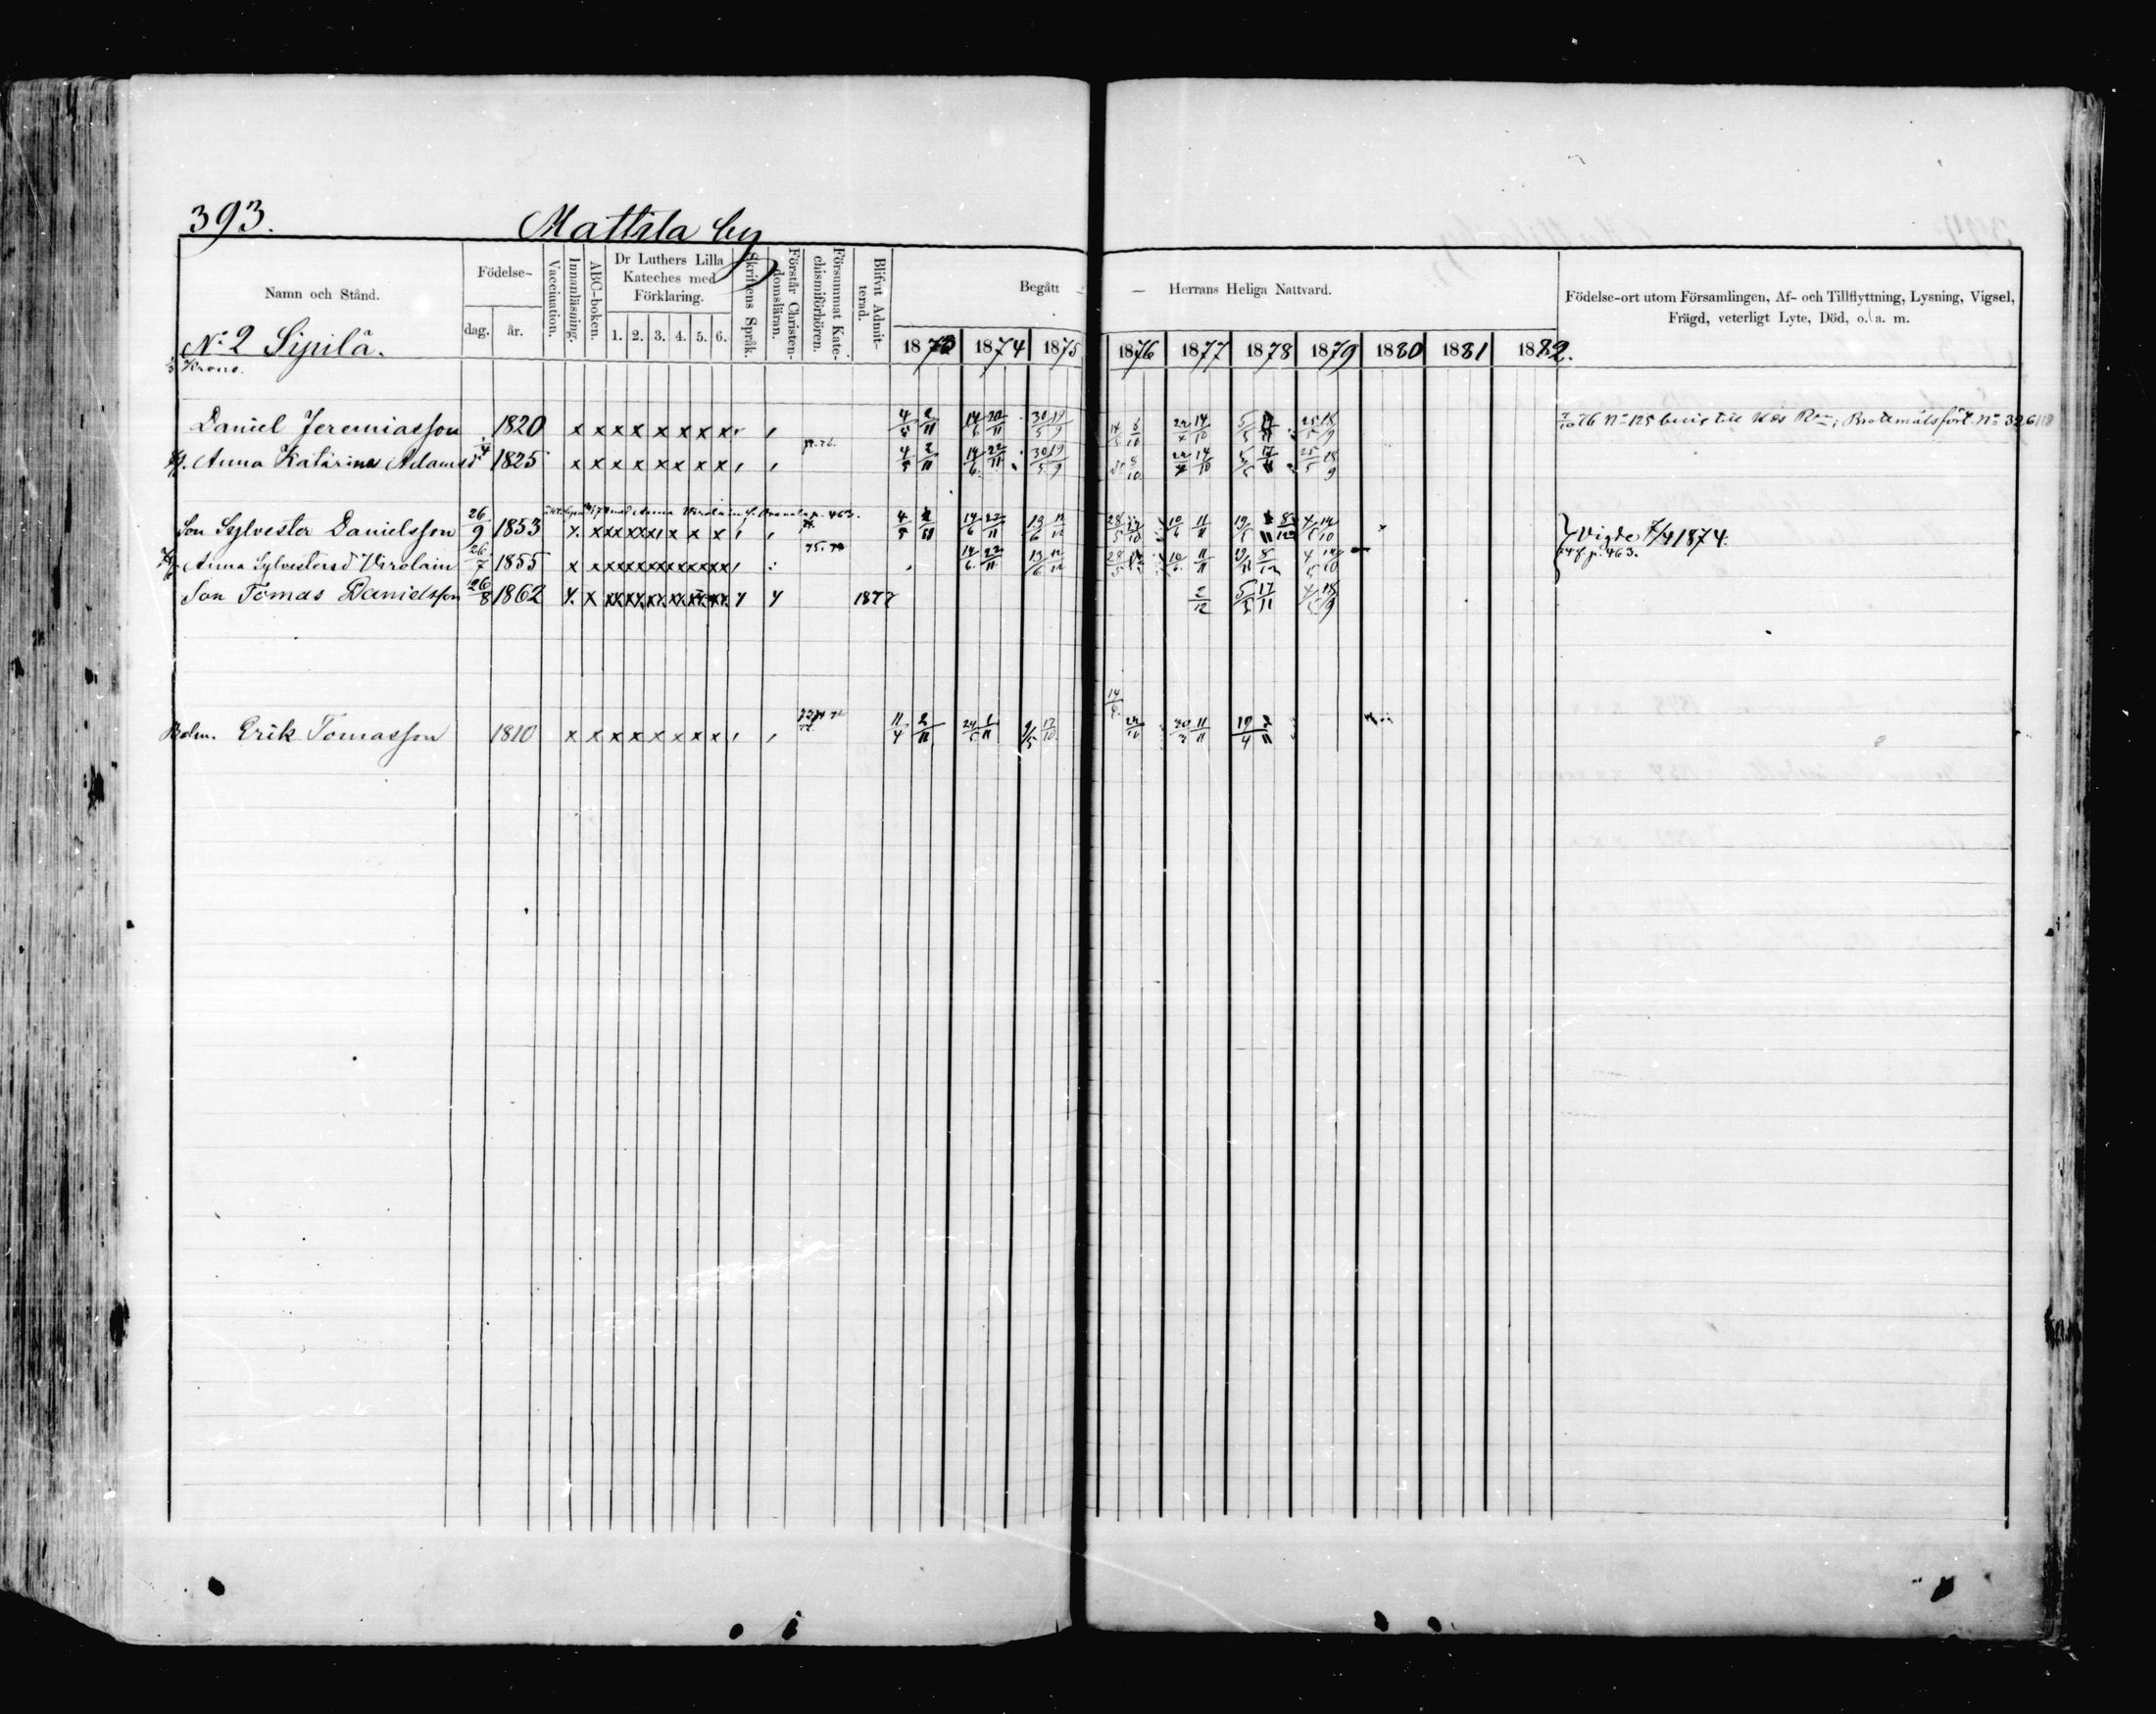 393. Mattila by
Namn och Stånd.
Födelse-
dag. år.
Vaccination.
Innanläsning.
ABC-boken.
Dr Luthers Lilla
Kateches med
Förklaring.
1. 2. 3. 4. 5. 6.
Skriftens Språk.
Förstår Christen-
domsläran.
Försummat Kate-
chismiförhören.
Blifvit Admit-
terad.
Begått — Herrans Heliga Nattvard.
1873 1874 1875 1876 1877 1878 1879 1880 1881 1882.
Födelse-ort utom Församlingen, Af- och Tillflyttning, Lysning, Vigsel,
Frägd, veterligt Lyte, Död, o. a. m.
No 2 Sipilä.
Krono.
Daniel Jeremiasson 1820 x x x x x x x x 4/5 2/11 14/6 22/11 30/5 19/9 14/5 8/10 22/4 14/10 5/5 17/11 25/5 18/9 76 No 125 till
H. Anna Katarina Adamsd 1825 x x x x x x x x 4/5 2/11 14/6 22/11 30/5 19/9 8/10 22/4 14/10 5/5 17/11 25/5 18/9
med Anna p. 463.
Son Sylvester Danielsson 26/9 1853 4/5 2/11 14/6 22/11 13/6 28/5 10/6 11/11 19/5 8/12 4/5 Vigde 7/4 1874.
Anna Sylvestersd Virolain 26/7 1855 14/6 22/11 13/6 28/5 10/6 11/11 p. 463.
Son Tomas Danielsson 26/8 1862 1877 2/12 5/5 17/11 4/5 18/9
Erik Tomasson 1810 x x x x x x x x 11/4 2/11 24/5 1/11 9/5 17/10 30/4 11/11 19/4